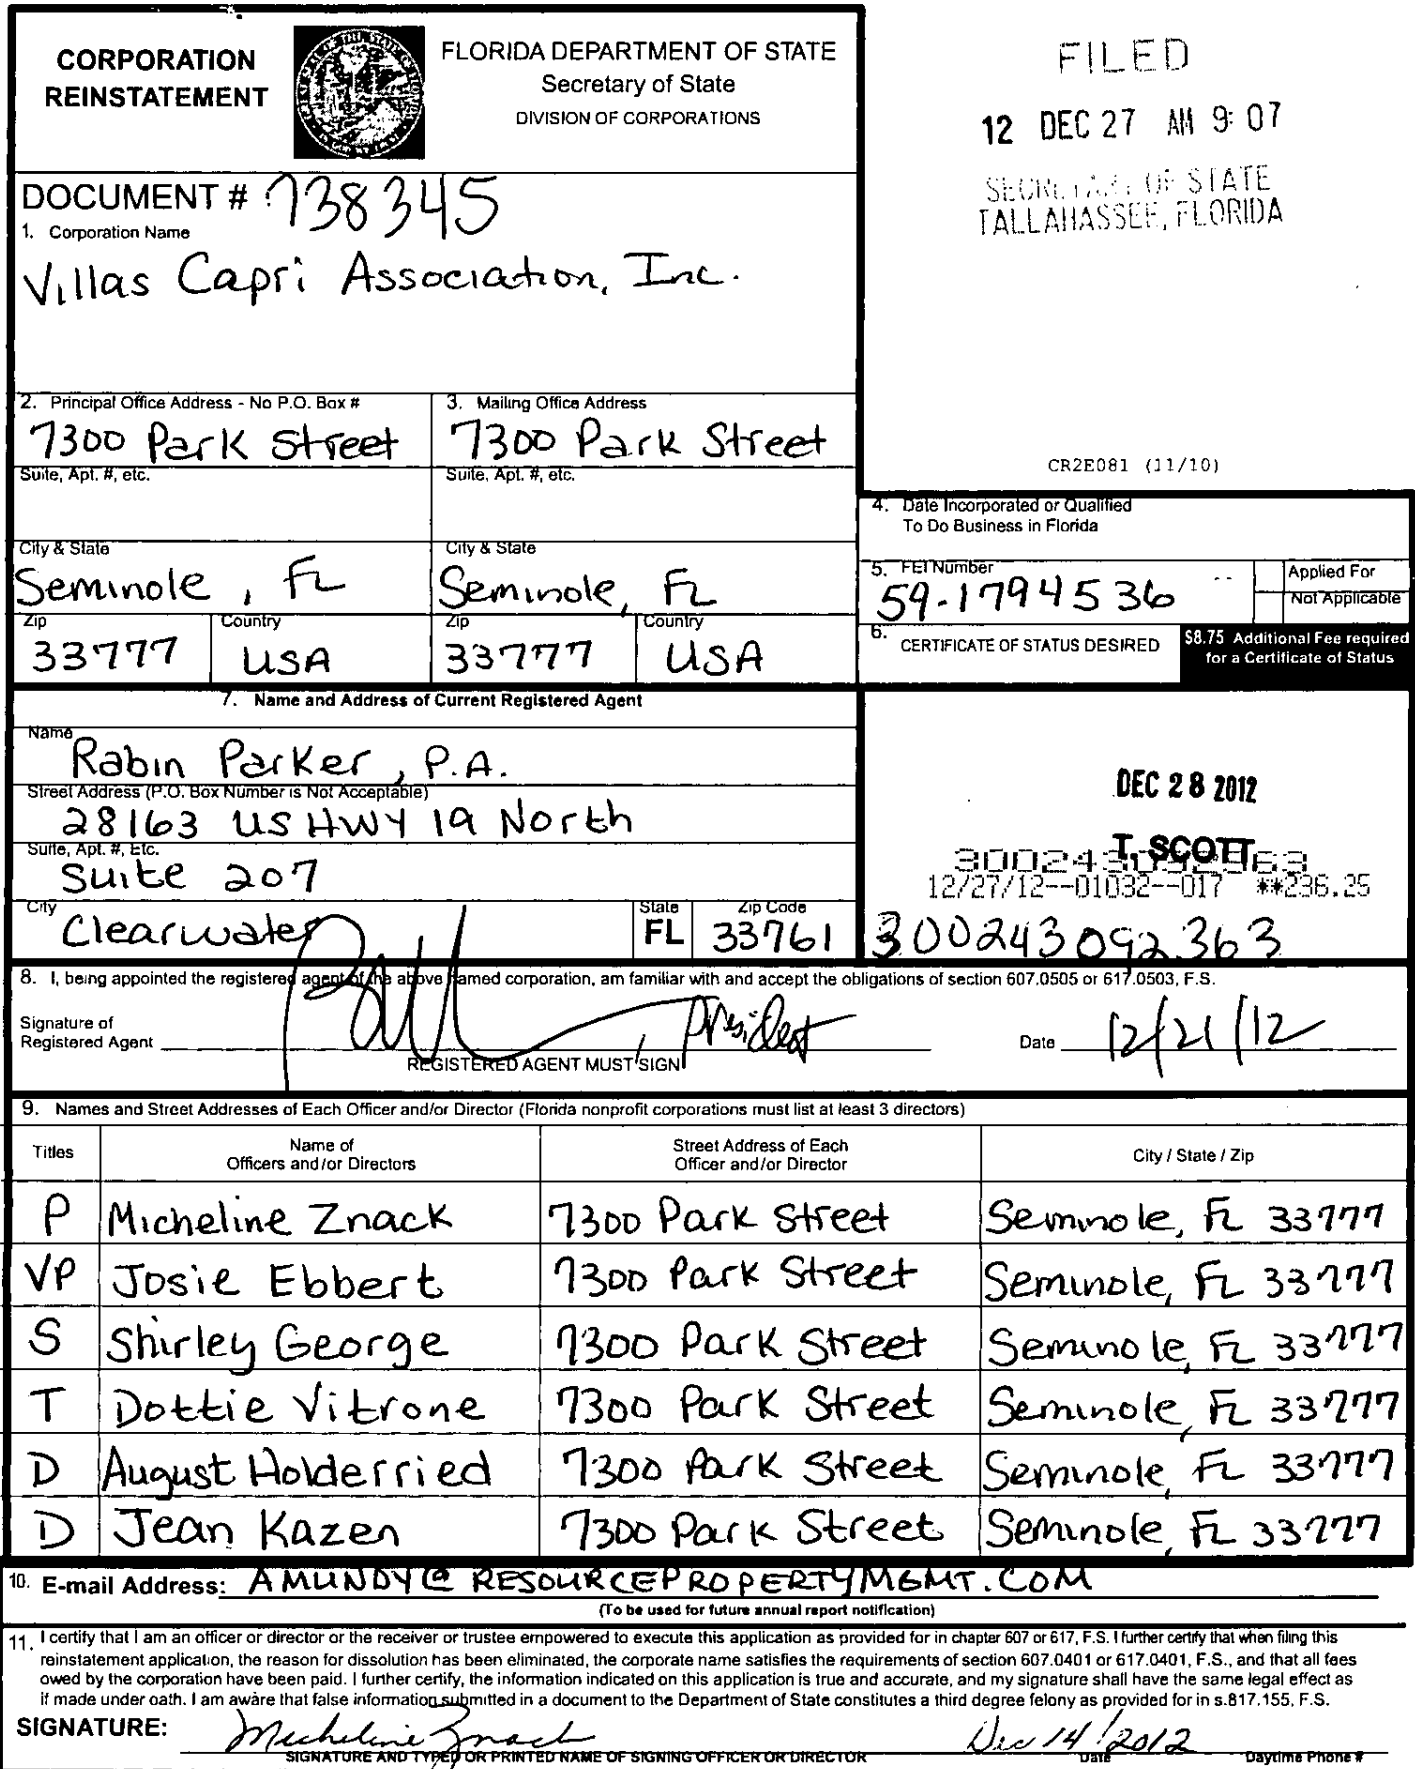 CORPORATION
REINSTATEMENT
FLORIDA DEPARTMENT OF STATE
Secretary of State
DIVISION OF CORPORATIONS
FILED
12 DEC 27 AM 9:07
SECRETARY OF STATE
TALLAHASSEE, FLORIDA
DOCUMENT # 738345
1. Corporation Name
Villas Capri Association, Inc.
2. Principal Office Address - No P.O. Box #
7300 Park Street
Suite, Apt. #, etc.
City & State
Seminole, FL
Zip
33777
Country
USA
3. Mailing Office Address
7300 Park Street
Suite, Apt. #, etc.
City & State
Seminole, FL
Zip
33777
Country
USA
CR2E081 (11/10)
4. Date Incorporated or Qualified
To Do Business in Florida
5. FEI Number
59-1794536
Applied For
Not Applicable
6. CERTIFICATE OF STATUS DESIRED
$8.75 Additional Fee required
for a Certificate of Status
7. Name and Address of Current Registered Agent
Name
Rabin Parker, P.A.
Street Address (P.O. Box Number is Not Acceptable)
28163 US HWY 19 North
Suite, Apt. #, Etc.
Suite 207
City
Clearwater
State
FL
Zip Code
33761
DEC 28 2012
T. SCOTT
300243092363
12/27/12--01032--017 **236.25
300243092363
8. I, being appointed the registered agent of the above named corporation, am familiar with and accept the obligations of section 607.0505 or 617.0503, F.S.
Signature of
Registered Agent , President
REGISTERED AGENT MUST SIGN
Date 12/21/12
9. Names and Street Addresses of Each Officer and/or Director (Florida nonprofit corporations must list at least 3 directors)
Titles
Name of
Officers and/or Directors
Street Address of Each
Officer and/or Director
City / State / Zip
P Micheline Znack 7300 Park Street Seminole, FL 33777
VP Josie Ebbert 7300 Park Street Seminole, FL 33777
S Shirley George 7300 Park Street Seminole, FL 33777
T Dottie Vitrone 7300 Park Street Seminole, FL 33777
D August Holderried 7300 Park Street Seminole, FL 33777
D Jean Kazen 7300 Park Street Seminole, FL 33777
10. E-mail Address: AMUNDY@RESOURCEPROPERTYMGMT.COM
(To be used for future annual report notification)
11. I certify that I am an officer or director or the receiver or trustee empowered to execute this application as provided for in chapter 607 or 617, F.S. I further certify that when filing this
reinstatement application, the reason for dissolution has been eliminated, the corporate name satisfies the requirements of section 607.0401 or 617.0401, F.S., and that all fees
owed by the corporation have been paid. I further certify, the information indicated on this application is true and accurate, and my signature shall have the same legal effect as
if made under oath. I am aware that false information submitted in a document to the Department of State constitutes a third degree felony as provided for in s.817.155, F.S.
SIGNATURE: Micheline Znack Dec 14/2012
SIGNATURE AND TYPED OR PRINTED NAME OF SIGNING OFFICER OR DIRECTOR
Date
Daytime Phone #